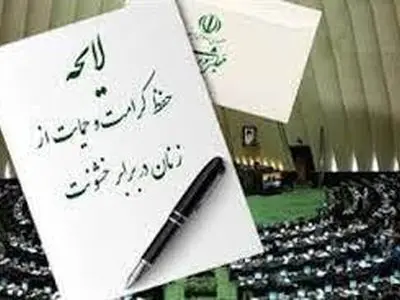 لایحه
حفظ کرامت و حمایت از
زنان در برابر خشونت